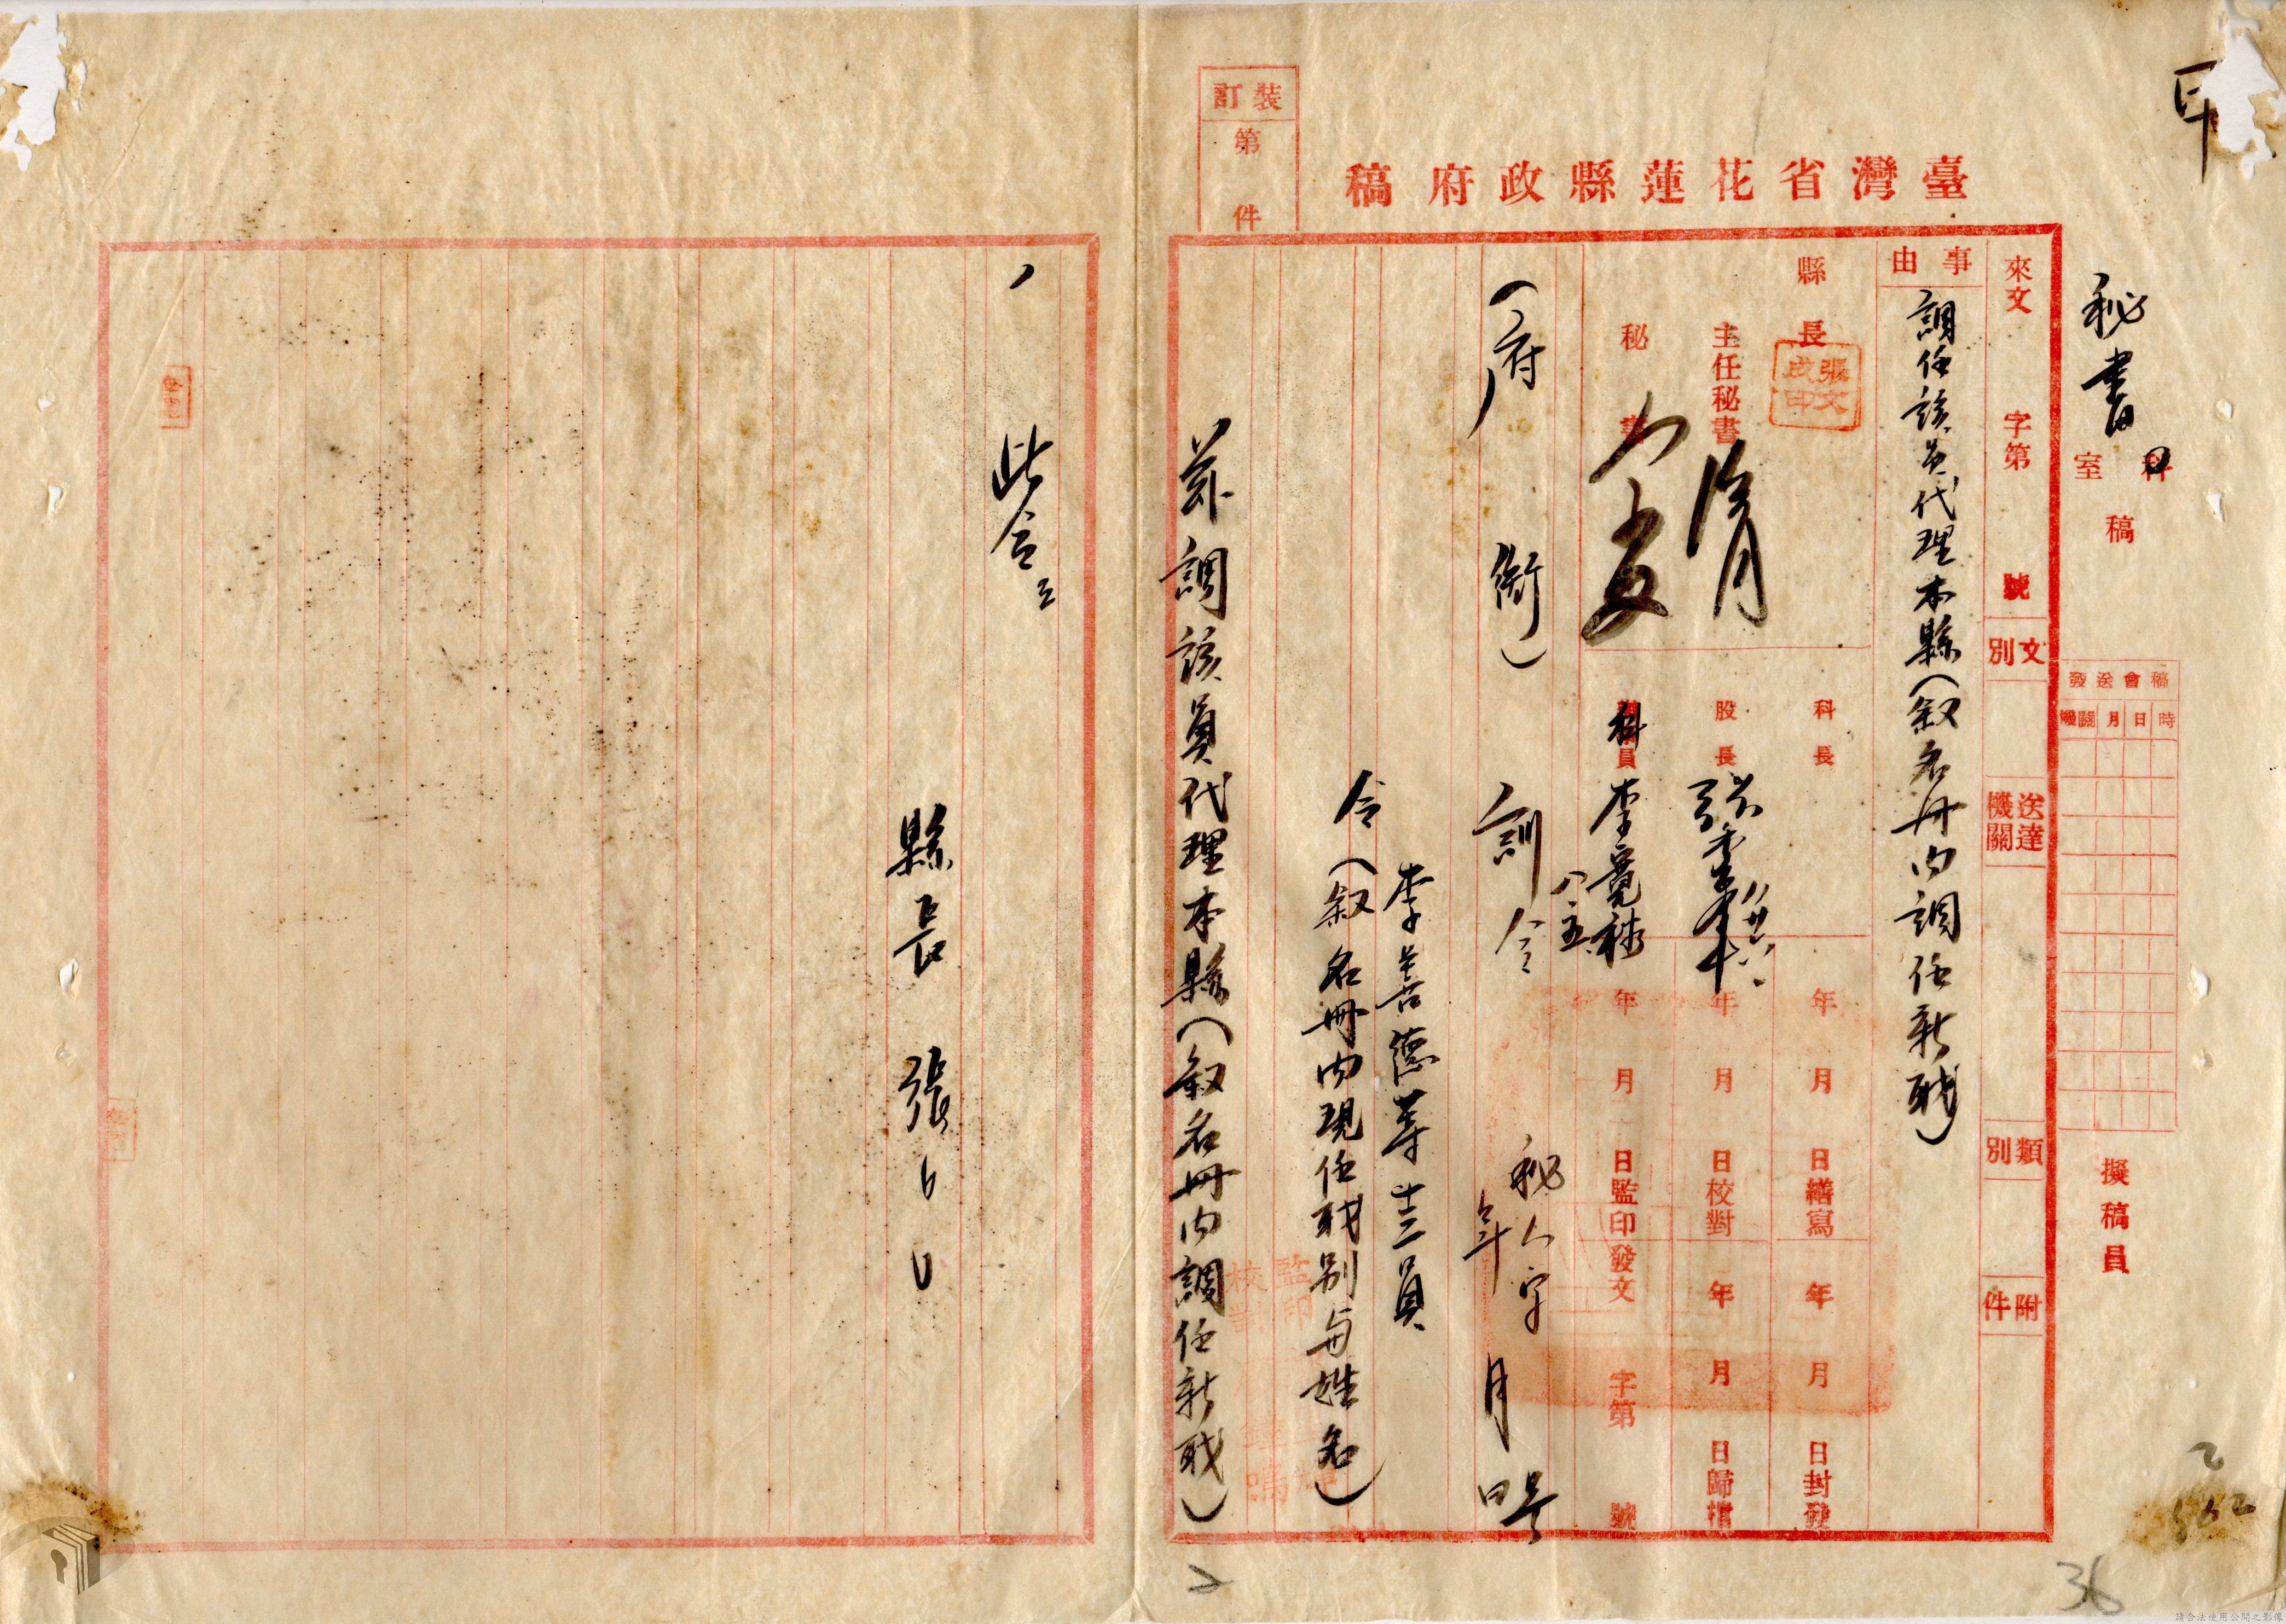 臺灣省花蓮縣政府稿
裝訂
第
件
秘書
科
室
稿
稿會送發
時日月機關
擬稿員
來文
字第
號
文別
送達機關
類別
附件
事由
調任該員代理本縣(叙名冊內調任新職)
縣長
張文成印
主任秘書
秘書
科長
股長
科員
李
八五
年 月 日繕寫
年 月 日封發
年 月 日校對
年 月 日歸檔
年 月 日監印
發文
字第
號
(府銜)訓令
秘人字
號
年 月 日
李善德等十三員
令(叙名冊內現任職別与姓名)
茲調該員代理本縣(叙名冊內調任新職)
監印
校對
此令
縣長 張
36
請合法使用公開之影像